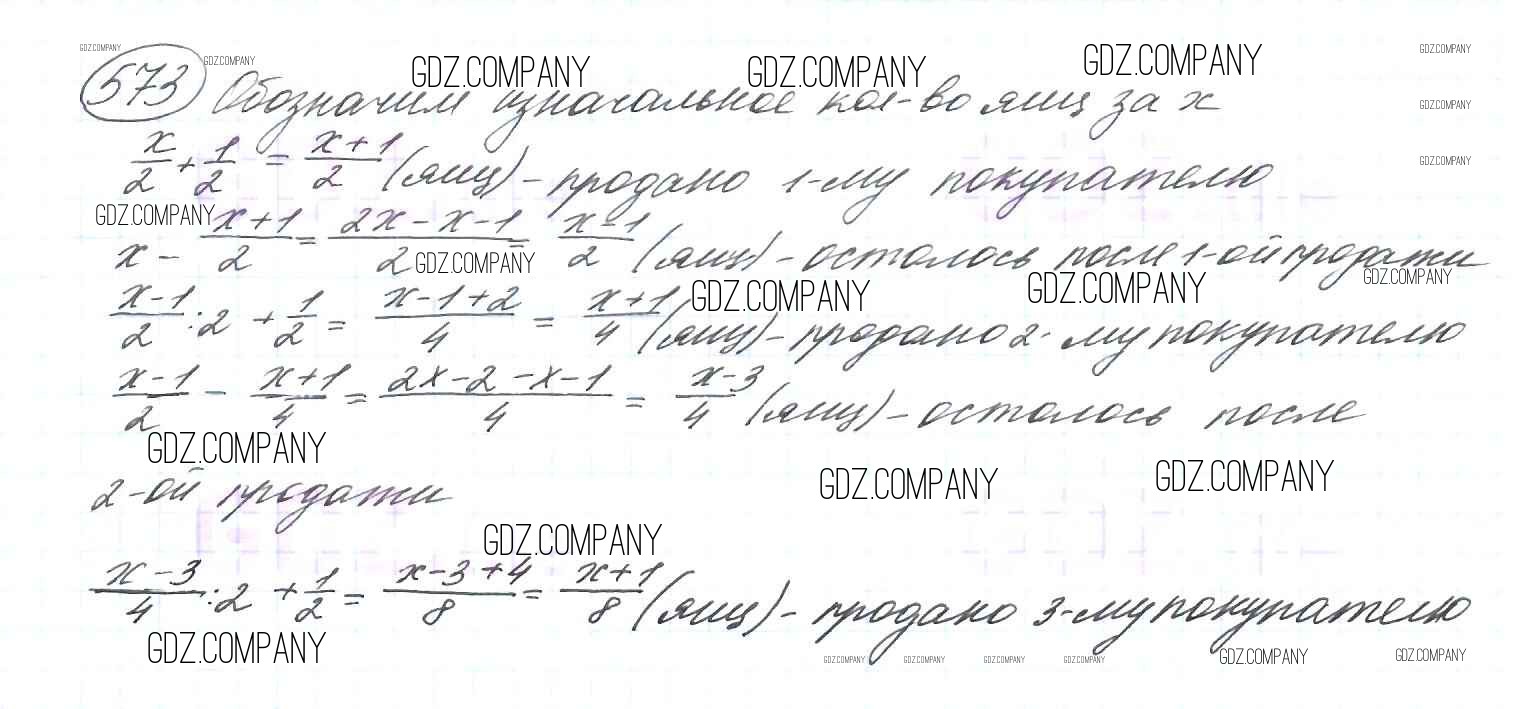 GDZ.COMPANY
573 Обозначим изначальное кол-во яиц за x
GDZ.COMPANY GDZ.COMPANY GDZ.COMPANY GDZ.COMPANY GDZ.COMPANY
GDZ.COMPANY
x/2 + 1/2 = (x+1)/2 (яиц) - продано 1-му покупателю
GDZ.COMPANY
GDZ.COMPANY
x - (x+1)/2 = (2x-x-1)/2 = (x-1)/2 (яиц) - осталось после 1-ой продажи
GDZ.COMPANY GDZ.COMPANY
(x-1)/2 : 2 + 1/2 = (x-1+2)/4 = (x+1)/4 (яиц) - продано 2-му покупателю
GDZ.COMPANY GDZ.COMPANY
(x-1)/2 - (x+1)/4 = (2x-2-x-1)/4 = (x-3)/4 (яиц) - осталось после
GDZ.COMPANY GDZ.COMPANY GDZ.COMPANY
2-ой продажи
GDZ.COMPANY
(x-3)/4 : 2 + 1/2 = (x-3+4)/8 = (x+1)/8 (яиц) - продано 3-му покупателю
GDZ.COMPANY GDZ.COMPANY GDZ.COMPANY GDZ.COMPANY GDZ.COMPANY GDZ.COMPANY GDZ.COMPANY